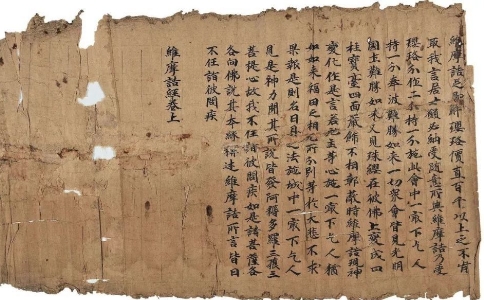 維摩詰足即解瓔珞價直百千以上之不肯
取我言居士願必納受隨意所與維摩詰乃受
瓔珞分作二分持一分施此會中一最下乞人
持一分奉彼難勝如來一切衆會皆見光明
國土難勝如來又見珠瓔在彼佛上變成四
柱寶臺四面嚴飾不相鄣蔽時維摩詰現神
變化作是言若施主等心施一最下乞人猶
如如來福田之相无所分別等於大悲不求
果報是則名曰具足法施城中一最下乞人
見是神力聞其所說皆發阿耨多羅三藐三
菩提心故我不任詣彼問疾如是諸菩薩各
各向佛說其本緣稱述維摩詰所言皆曰
不任詣彼問疾
維摩詰經卷上